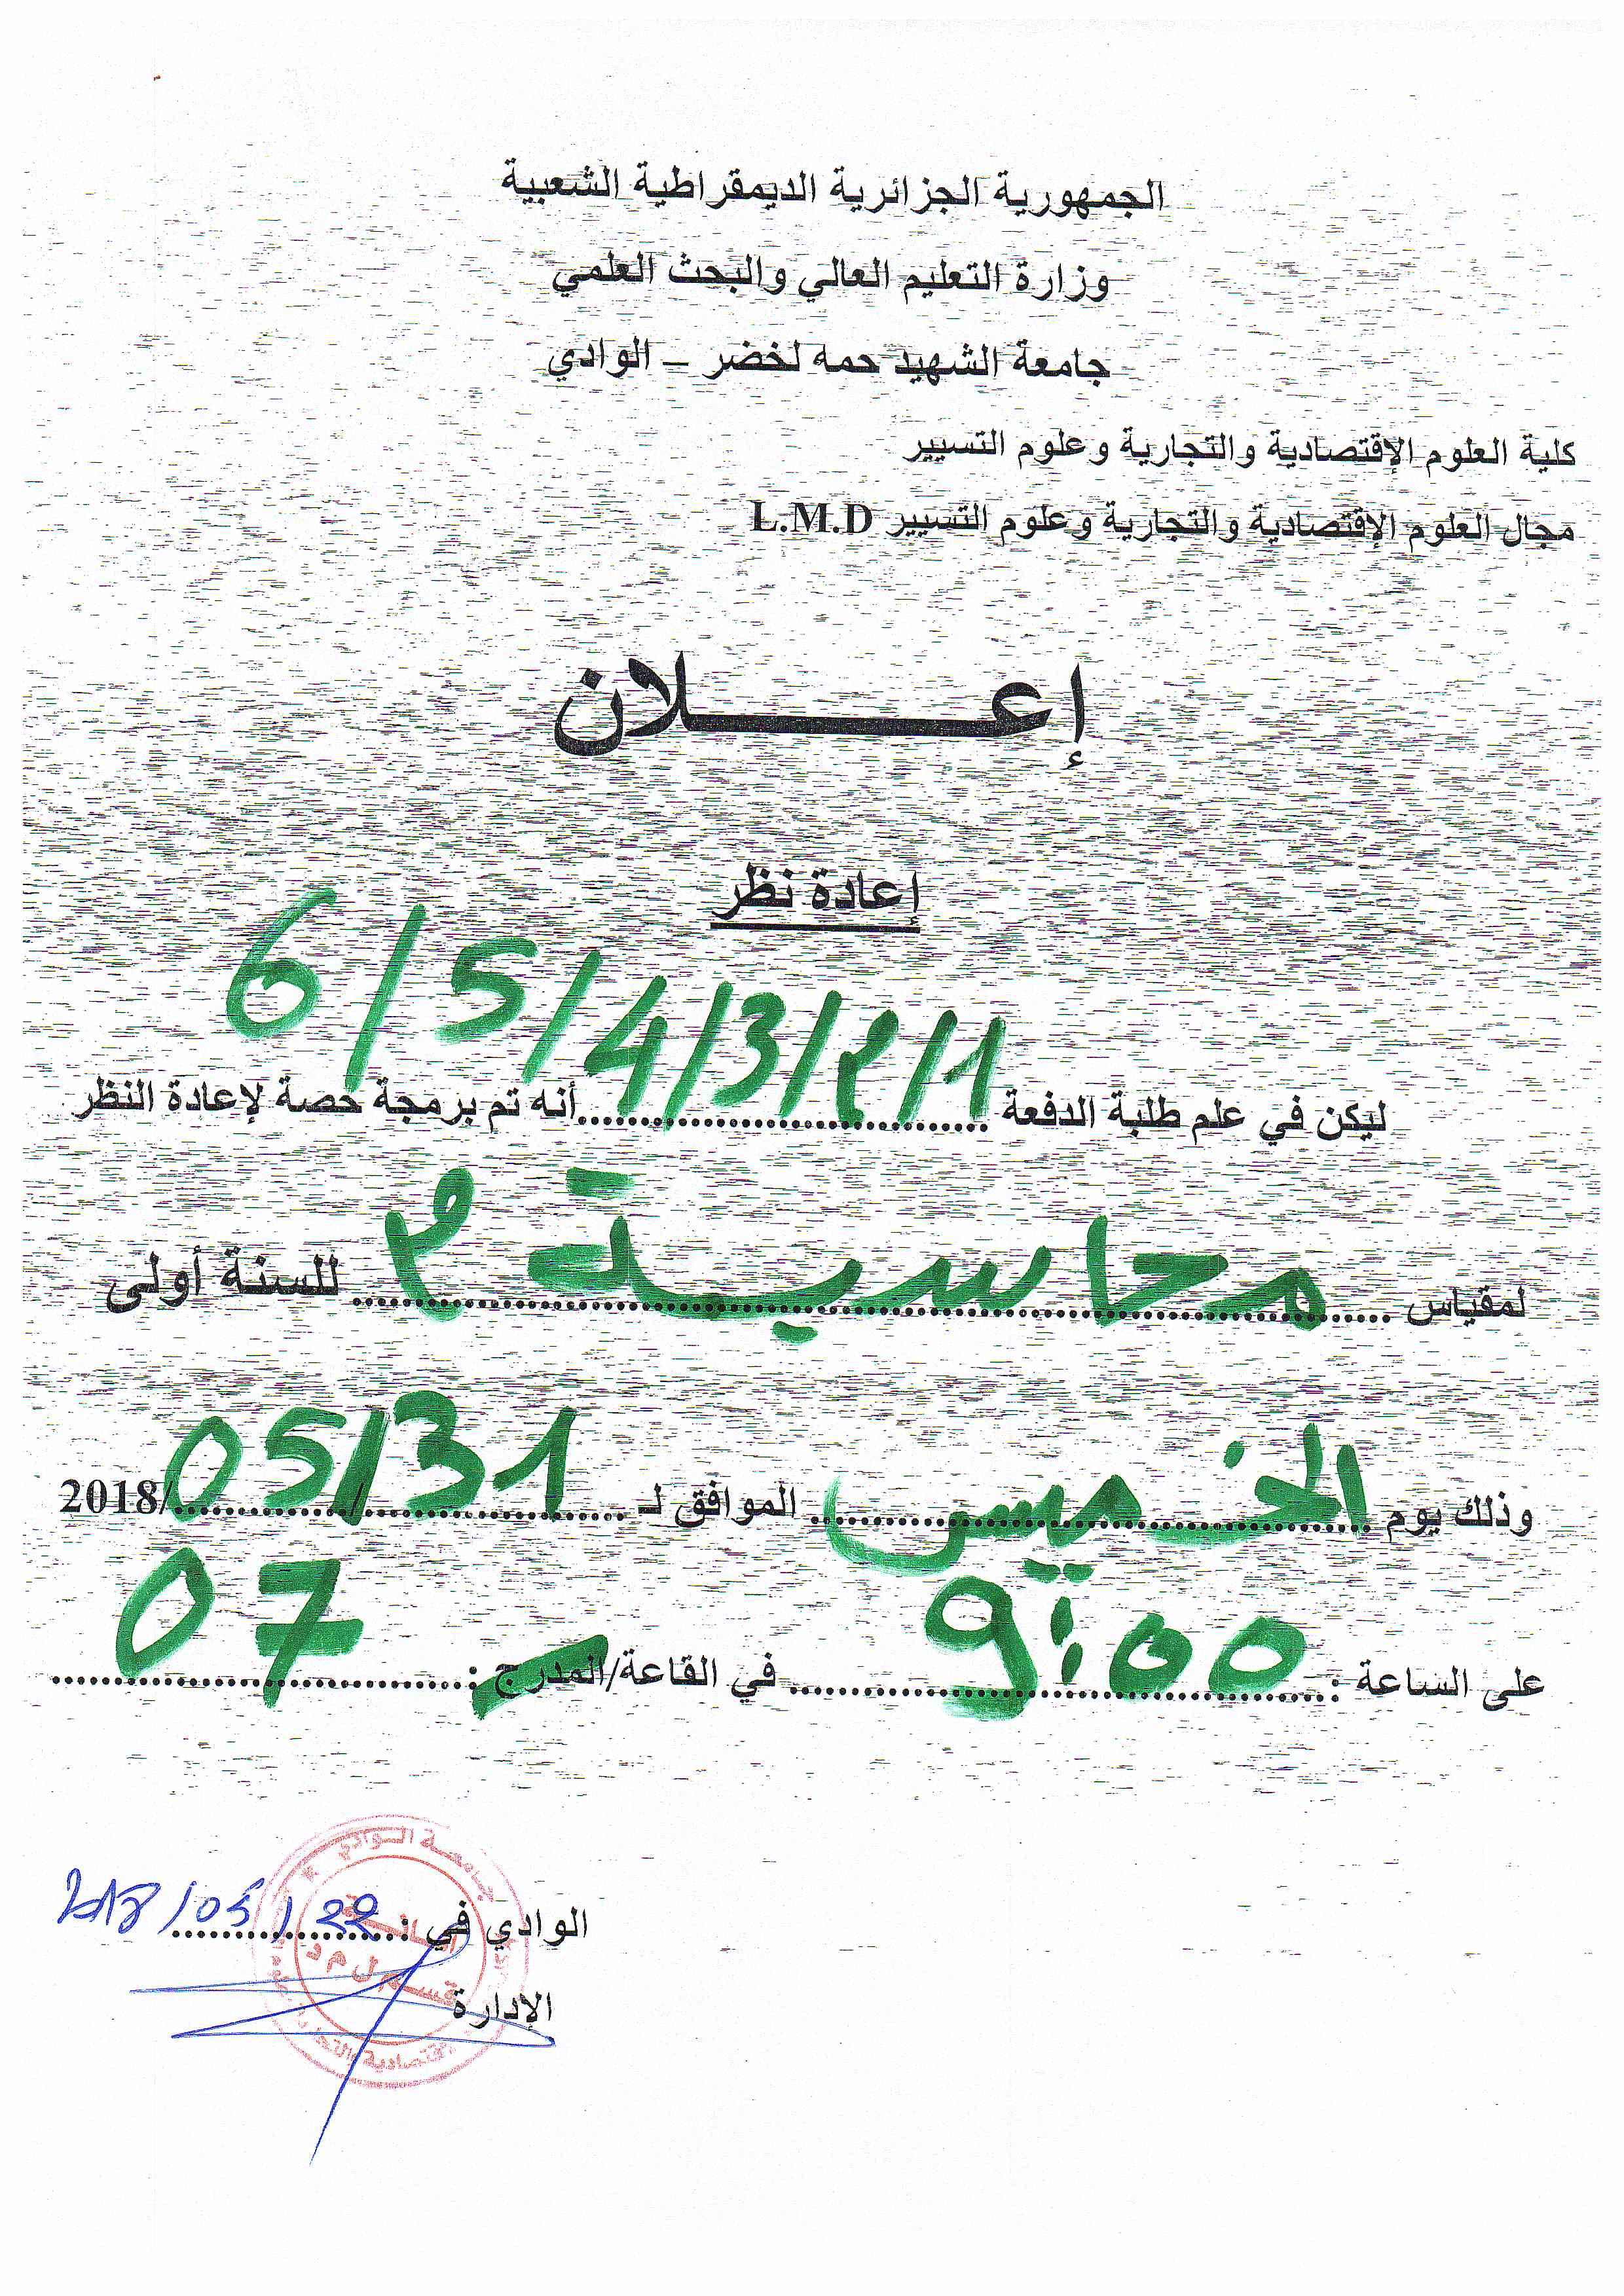 الجمهورية الجزائرية الديمقراطية الشعبية
وزارة التعليم العالي والبحث العلمي
جامعة الشهيد حمه لخضر – الوادي
كلية العلوم الإقتصادية والتجارية وعلوم التسيير
مجال العلوم الإقتصادية والتجارية وعلوم التسيير L.M.D
إعـــــــــلان
إعادة نظر
ليكن في علم طلبة الدفعة 1/2/3/4/5/6 أنه تم برمجة حصة لإعادة النظر
لمقياس محاسبة 2 للسنة أولى
وذلك يوم الخميس الموافق لـ 31/05/2018
على الساعة : 9:00 في القاعة/المدرج : 07
الوادي في : 22/05/2018
الإدارة
جامعة الوادي
قسم ل م د